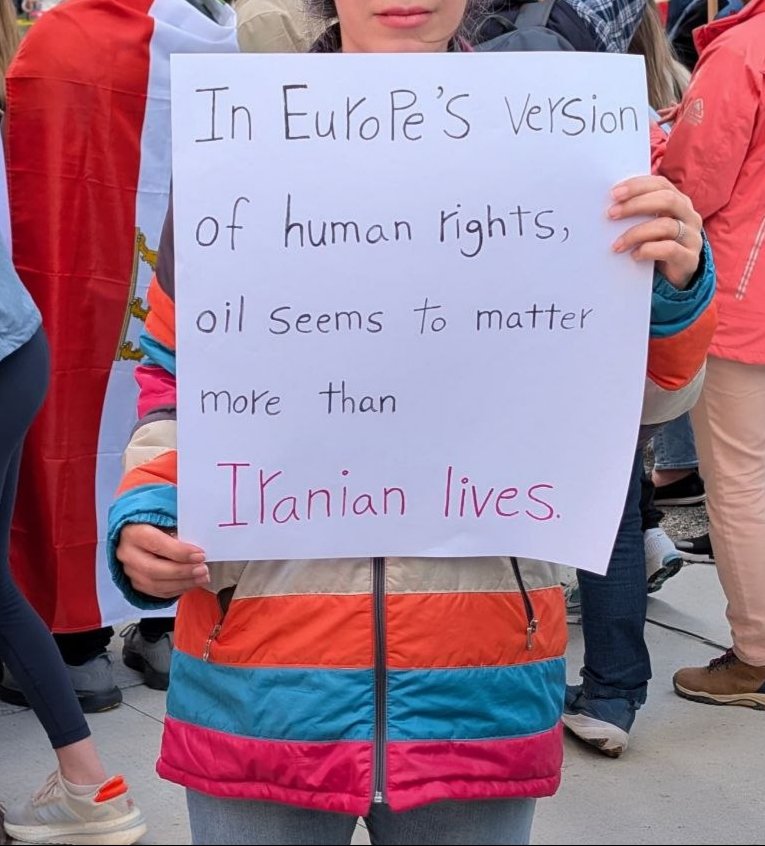 In Europe's version
of human rights,
oil seems to matter
more than
Iranian lives.